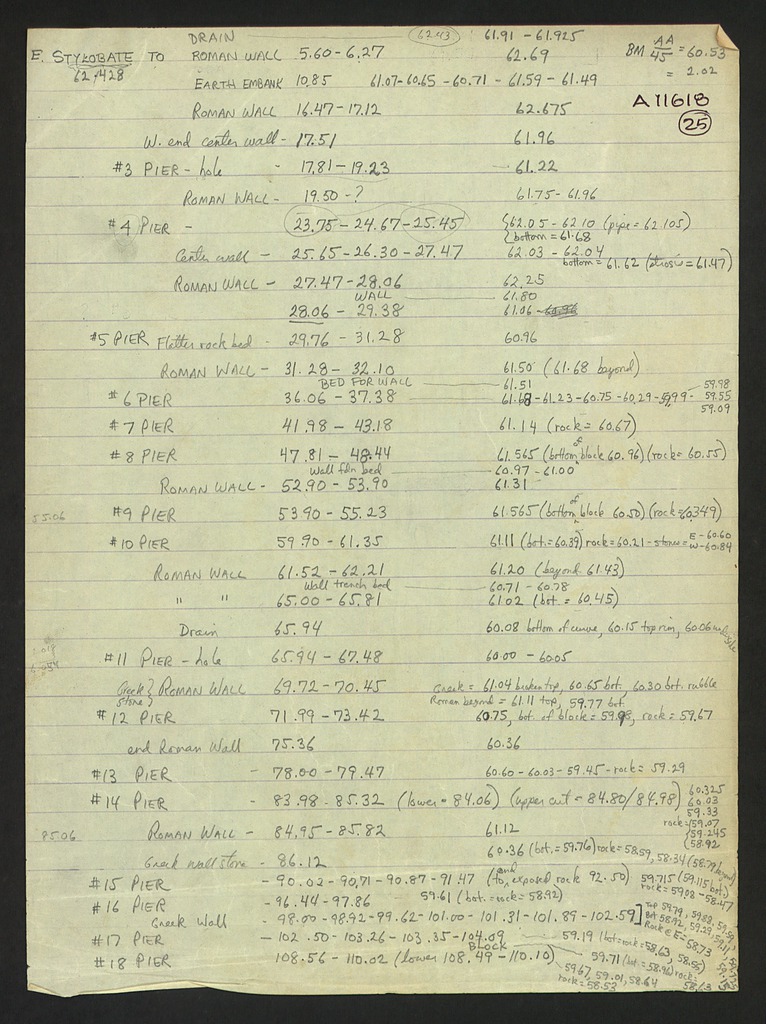 DRAIN 62.43 61.91 - 61.925
E. STYLOBATE TO ROMAN WALL 5.60 - 6.27 62.69 BM AA/45 = 60.53
62.428 = 2.02
EARTH EMBANK 10.85 61.07 - 60.65 - 60.71 - 61.59 - 61.49
ROMAN WALL 16.47 - 17.12 62.675 A 11618
W. end center wall - 17.51 61.96 25
#3 PIER - hole - 17.81 - 19.23 61.22
ROMAN WALL - 19.50 - ? 61.75 - 61.96
#4 PIER - 23.75 - 24.67 - 25.45 62.05 - 62.10 (pipe = 62.105)
bottom = 61.68
Center wall - 25.65 - 26.30 - 27.47 62.03 - 62.04
bottom = 61.62 (= 61.47)
ROMAN WALL - 27.47 - 28.06 62.25
WALL 61.80
28.06 - 29.38 61.06
#5 PIER Flatter rock bed - 29.76 - 31.28 60.96
ROMAN WALL - 31.28 - 32.10 61.50 (61.68 beyond)
BED FOR WALL 61.51
#6 PIER 36.06 - 37.38 61.68 - 61.23 - 60.75 - 60.29 - 59.99 - 59.98
59.55
59.09
#7 PIER 41.98 - 43.18 61.14 (rock = 60.67)
#8 PIER 47.81 - 48.44 61.565 (bottom of block 60.96) (rock = 60.55)
Wall fdn bed 60.97 - 61.00
ROMAN WALL - 52.90 - 53.90 61.31
55.06 #9 PIER 53.90 - 55.23 61.565 (bottom of block 60.50) (rock = 60.349)
#10 PIER 59.90 - 61.35 61.11 (bot. = 60.39) rock = 60.21 - stones = E - 60.60
W - 60.84
ROMAN WALL 61.52 - 62.21 61.20 (beyond 61.43)
Wall trench bed 60.71 - 60.78
" " 65.00 - 65.81 61.02 (bot. = 60.45)
Drain 65.94 60.08 bottom of curve, 60.15 top rim, 60.06
#11 PIER - hole 65.94 - 67.48 60.00 - 60.05
Greek stone } ROMAN WALL 69.72 - 70.45 Greek = 61.04 broken top, 60.65 bot., 60.30 bot. rubble
Roman beyond = 61.11 top, 59.77 bot
#12 PIER 71.99 - 73.42 60.75, bot. of block = 59.98, rock = 59.67
end Roman Wall 75.36 60.36
#13 PIER - 78.00 - 79.47 60.60 - 60.03 - 59.45 - rock = 59.29
#14 PIER - 83.98 - 85.32 (lower = 84.06) (upper cut = 84.80/84.98) 60.325
60.03
59.33
rock = 59.07
59.245
58.92
85.06 ROMAN WALL - 84.95 - 85.82 61.12
Greek wall stone - 86.12 60.36 (bot. = 59.76) rock = 58.59, 58.34
#15 PIER - 90.02 - 90.71 - 90.87 - 91.47 (and to exposed rock 92.50) 59.715 (59.115 bot.)
#16 PIER - 96.44 - 97.86 59.61 (bot. = rock = 58.92)
Greek Wall - 98.00 - 98.92 - 99.62 - 101.00 - 101.31 - 101.85 - 102.59
#17 PIER - 102.50 - 103.26 - 103.35 - 104.09 59.19 (bot = rock = 58.63, 58.55)
BLOCK
#18 PIER 108.56 - 110.02 (lower 108.49 - 110.10) 59.71 (bot = 58.96) rock =
59.67, 59.01, 58.64
rock = 58.53